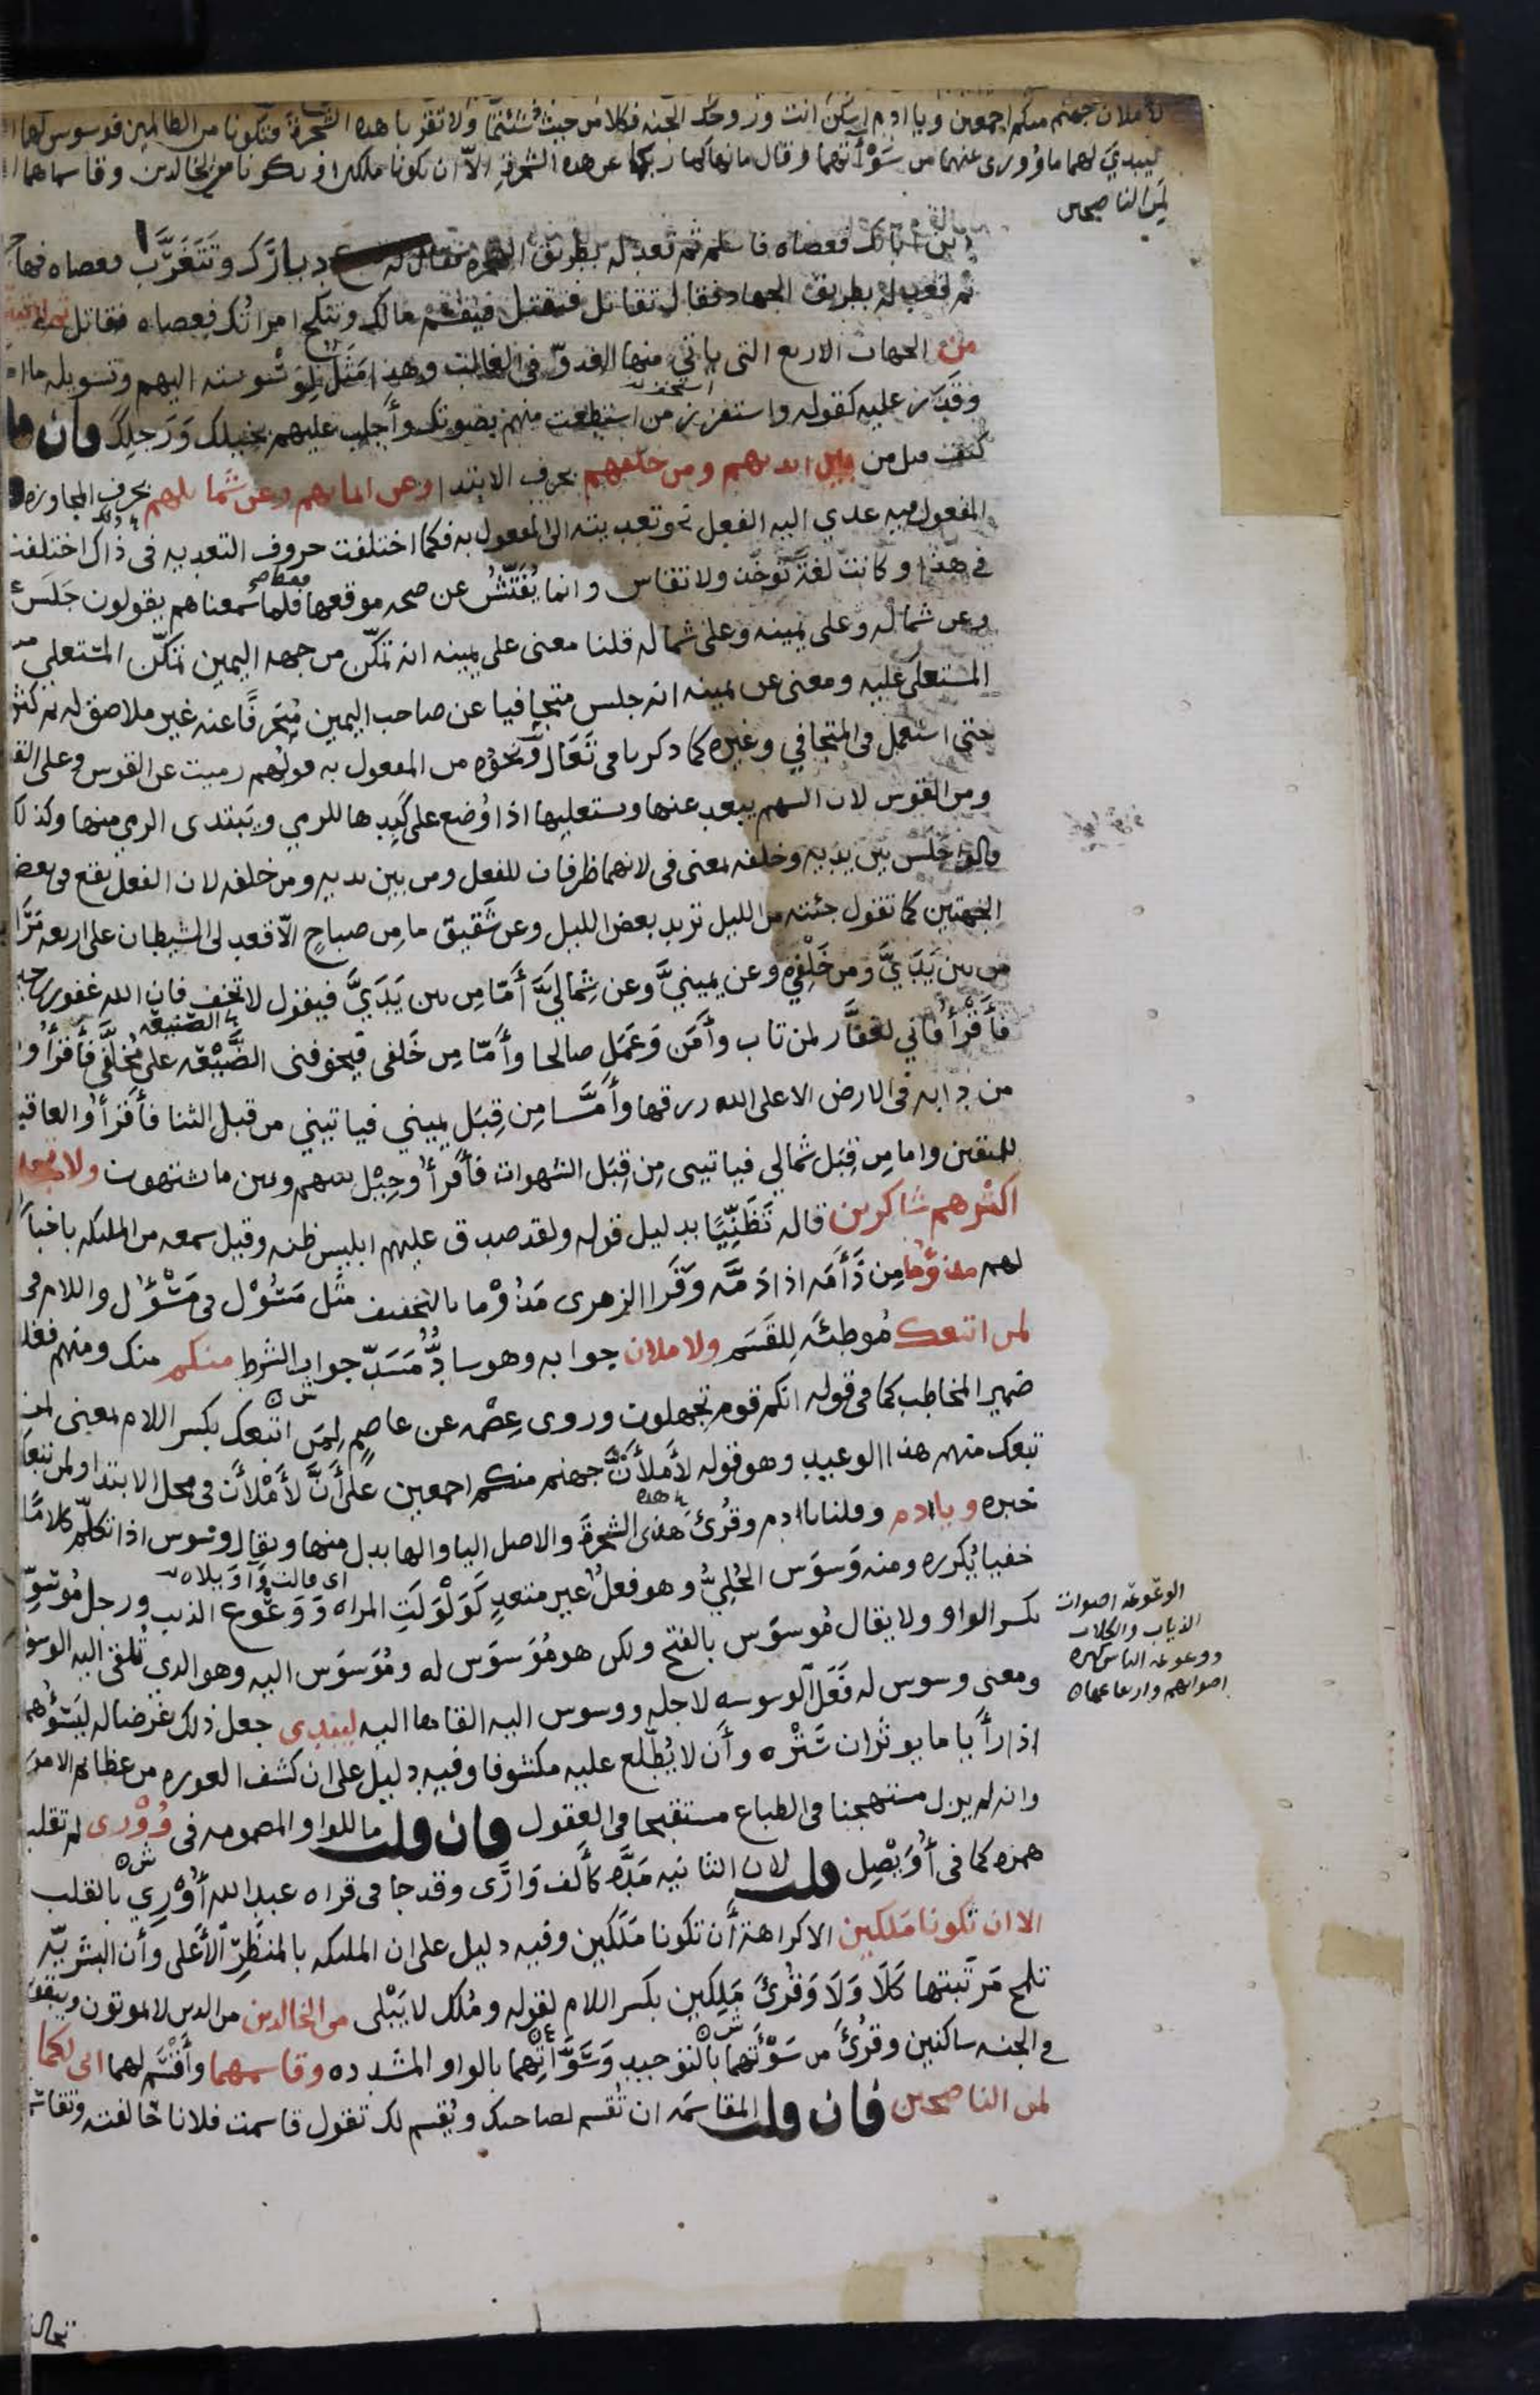 لأملأن جهنم منكم اجمعين ويا ادم اسكن انت وزوجك الجنه فكلا من حيث شئتما ولا تقربا هذه الشجرة فتكونا من الظالمين فوسوس لهما
ليبدي لهما ما وُوري عنهما من سَوْأتهما وقال ما نهاكما ربكما عن هذه الشجرة الّا ان تكونا ملكين او تكونا من الخالدين وقاسمهما
لمن الناصحين
دين ابائك فعصاه فاسلم ثم قعد له بطريق الهجره فقال له تدع ديارك وتتغرّب فعصاه فهاجر
ثم قعد له بطريق الجهاد فقال تقاتل فتقتل فيقسم مالك وتنكح امراتك فعصاه فقاتل
من الجهات الاربع التي ياتي منها العدوّ في الغالب وهذا مَثَلٌ لِوَسْوسته اليهم وتسويله ما
وقدَر عليه كقوله واستفزز من استطعت منهم بصوتك وأجلب عليهم بخيلك ورجلك فان
كيف قيل من بين ايديهم ومن خلفهم بحرف الابتدا وعن ايمانهم وعن شمايلهم بحرف المجاوزه
المفعول فيه عدي اليه الفعل نحو تعديته الى المفعول به فكما اختلفت حروف التعديه في ذاك اختلفت
في هذا وكانت لغةً تؤخذ ولا تقاس وانما يُفَتَّشُ عن صحه موقعها فقط فلما سمعناهم يقولون جَلَسَ
وعن شماله وعلى يمينه وعلى شماله قلنا معنى على يمينه انه تمكّن من جهه اليمين تمكّن المستعلي من
المستعلى عليه ومعنى عن يمينه انه جلس متجافيا عن صاحب اليمين مُنحرفًا عنه غير ملاصق له ثم كثر
حتى استُعمل في المتجافي وغيره كما ذكرنا في تَعَالَ ونحوُه من المفعول به قولهم رميت عن القوس وعلى القوس
ومن القوس لان السهم يبعد عنها ويستعليها اذا وُضع على كَبِدها للرمي ويَبتدي الرمي منها وكذلك
قالوا جَلَس بين يديه وخلفه بمعنى في لانهما ظرفان للفعل ومن بين يديه ومن خلفه لان الفعل يقع في بعض
الجهتين كما تقول جئته من الليل تريد بعض الليل وعن شَقِيق ما مِن صباحٍ الّا قعد لي الشيطان على اربعه مَرَاصد
من بين يَدَيَّ ومن خَلْفِي وعن يمينيَّ وعن شِماليَّ أمّا مِن بين يَدَيَّ فيقول لا تخف فان الله غفور رحيم
فأقرأ واني لغفَّار لمن تاب وأمَن وَعَمل صالحا وأمّا مِن خَلفي فيخوفني الضَّيْعَه على مُخَلَّفي فأقرأ وما
من دابه في الارض الا على الله رزقها وأمَّا مِن قِبَل يميني فياتيني من قبل الثنا فأقرأ والعاقبه
للمتقين واما مِن قِبَل شمالي فياتيني مِن قِبَل الشهوات فأقرأ وحِيْل بينهم وبين ما يشتهون ولا تجد
اكثرهم شاكرين قاله تَظَنِّيًا بدليل قوله ولقد صدق عليهم ابليس ظنه وقيل سمعه من الملئكه باخبار
لهم مذؤما مِن ذَأَمَه اذا ذمَّه وقرا الزهري مَذُوْما بالتخفيف مثل مَسُوْل في مَسْؤل واللام في
لمن اتبعك مُوطئَه لِلقَسَم ولاملان جوابه وهو سادٌّ مَسَدّ جواب الشرط منكم منك ومنهم فغلب
ضمير المخاطب كما في قوله انكم قوم تجهلون وروى عِصْمه عن عاصم لِمَن اتبعك بكسر اللام بمعنى لمن
تبعك منهم هذا الوعيد وهو قوله لأملأنَّ جهنم منكم اجمعين على أنَّ لأملأن في محل الابتدا ولمن تبعك
خبره ويا ادم وقلنا يا ادم وقُرئ هذي الشجرة والاصل اليا والها بدل منها ويقال وسوس اذا تكلم كلامًا
خفيا يُكرره ومنه وَسوَس الحُليُّ وهو فعلٌ غير متعدٍ كوَلْوَلَتِ المراه وَوَعْوع الذيب ورجل مُوَسوِس
اي قالت واويلاه
بكسر الواو ولا يقال مُوسوَس بالفتح ولكن هو مُوَسوَس له ومُوَسوَس اليه وهو الذي تُلقى اليه الوسوسه
ومعنى وسوس له فَعَل الوسوسه لاجله ووسوس اليه القاها اليه ليبدي جعل ذلك غرضا له ليَسُوْءهما
اذا رأيا ما يوثران سَتْره وأن لا يُطّلع عليه مكشوفا وفيه دليل على ان كشف العوره من عظائم الامور
وانه لم يزل مستهجنا في الطباع مستقبحا في العقول فان قلت ما للواو المضمومه في وُوْرى لم تقلب
همزه كما في أُوَيْصِل قلت لان الثانيه مَدَّه كألف وَارَى وقد جا في قراه عبد الله أُوْرِي بالقلب
الا ان تكونا مَلَكين الا كراهة أن تكونا مَلَكين وفيه دليل على ان الملئكه بالمنظَر الأعلى وأن البشريّه
تلمح مَرتبتها كَلَا وَلَا وقُرئ مَلِكين بكسر اللام لقوله ومُلك لا يَبْلى من الخالدين من الذين لا يموتون ويبقون
في الجنه ساكنين وقُرئ من سَوْءتهما بالتوحيد وَسَوَّاتِهما بالواو المشدده وقاسمهما وأقسَم لهما اني لكما
لمن الناصحين فان قلت المقاسَمَه ان تُقسم لصاحبك ويُقسم لك تقول قاسمت فلانا حالفته وتقاسما
الوَعْوَعه اصوات
الذياب والكلاب
ووعوعه الناس كثرة
اصواتهم
تحالفا